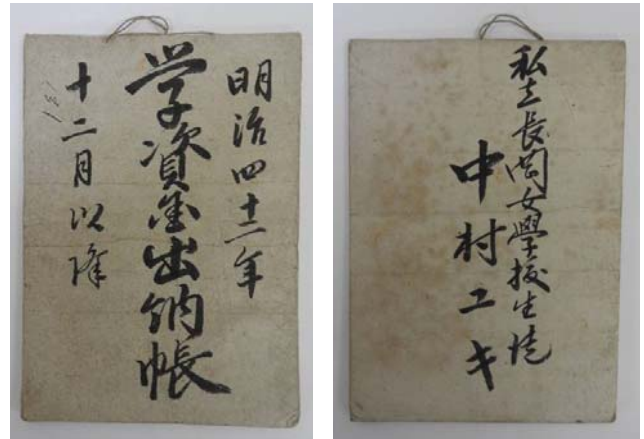 明治四十二年
学資金出納帳
十二月以降
私立長岡女學校生徒
中村ユキ